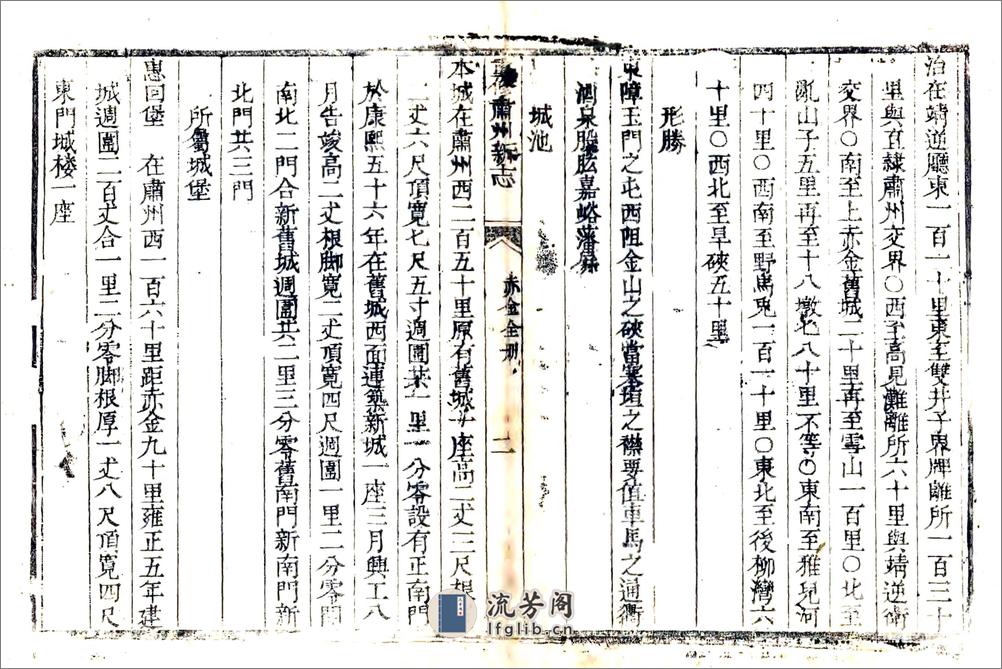 治在靖逆廳東一百一十里東至雙井子界牌離所一百三十
里與直隸肅州交界○西至高見灘離所六十里與靖逆衛
交界○南至上赤金舊城二十里再至雪山一百里○北至
亂山子五里再至十八墩七八十里不等○東南至雅兒河
四十里○西南至野馬兎一百一十里○東北至後柳灣六
十里○西北至旱硤五十里
形勝
東障玉門之屯西阻金山之硤當塞垣之襟要值車馬之通衢
酒泉股肱嘉峪藩屏
城池
肅州新志
赤金全册
二
本城在肅州西二百五十里原有舊城一座高二丈三尺根
二丈六尺頂寬七尺五寸週圍共一里一分零設有正南門
於康熙五十六年在舊城西面連築新城一座三月興工八
月告竣高二丈根脚寬二丈頂寬四尺週圍一里二分零開
南北二門合新舊城週圍共二里三分零舊南門新南門新
北門共三門
所屬城堡
惠回堡 在肅州西一百六十里距赤金九十里雍正五年建
城週圍二百丈合一里二分零脚根厚一丈八尺頂寬四尺
東門城楼一座
流芳阁
lfglib.cn